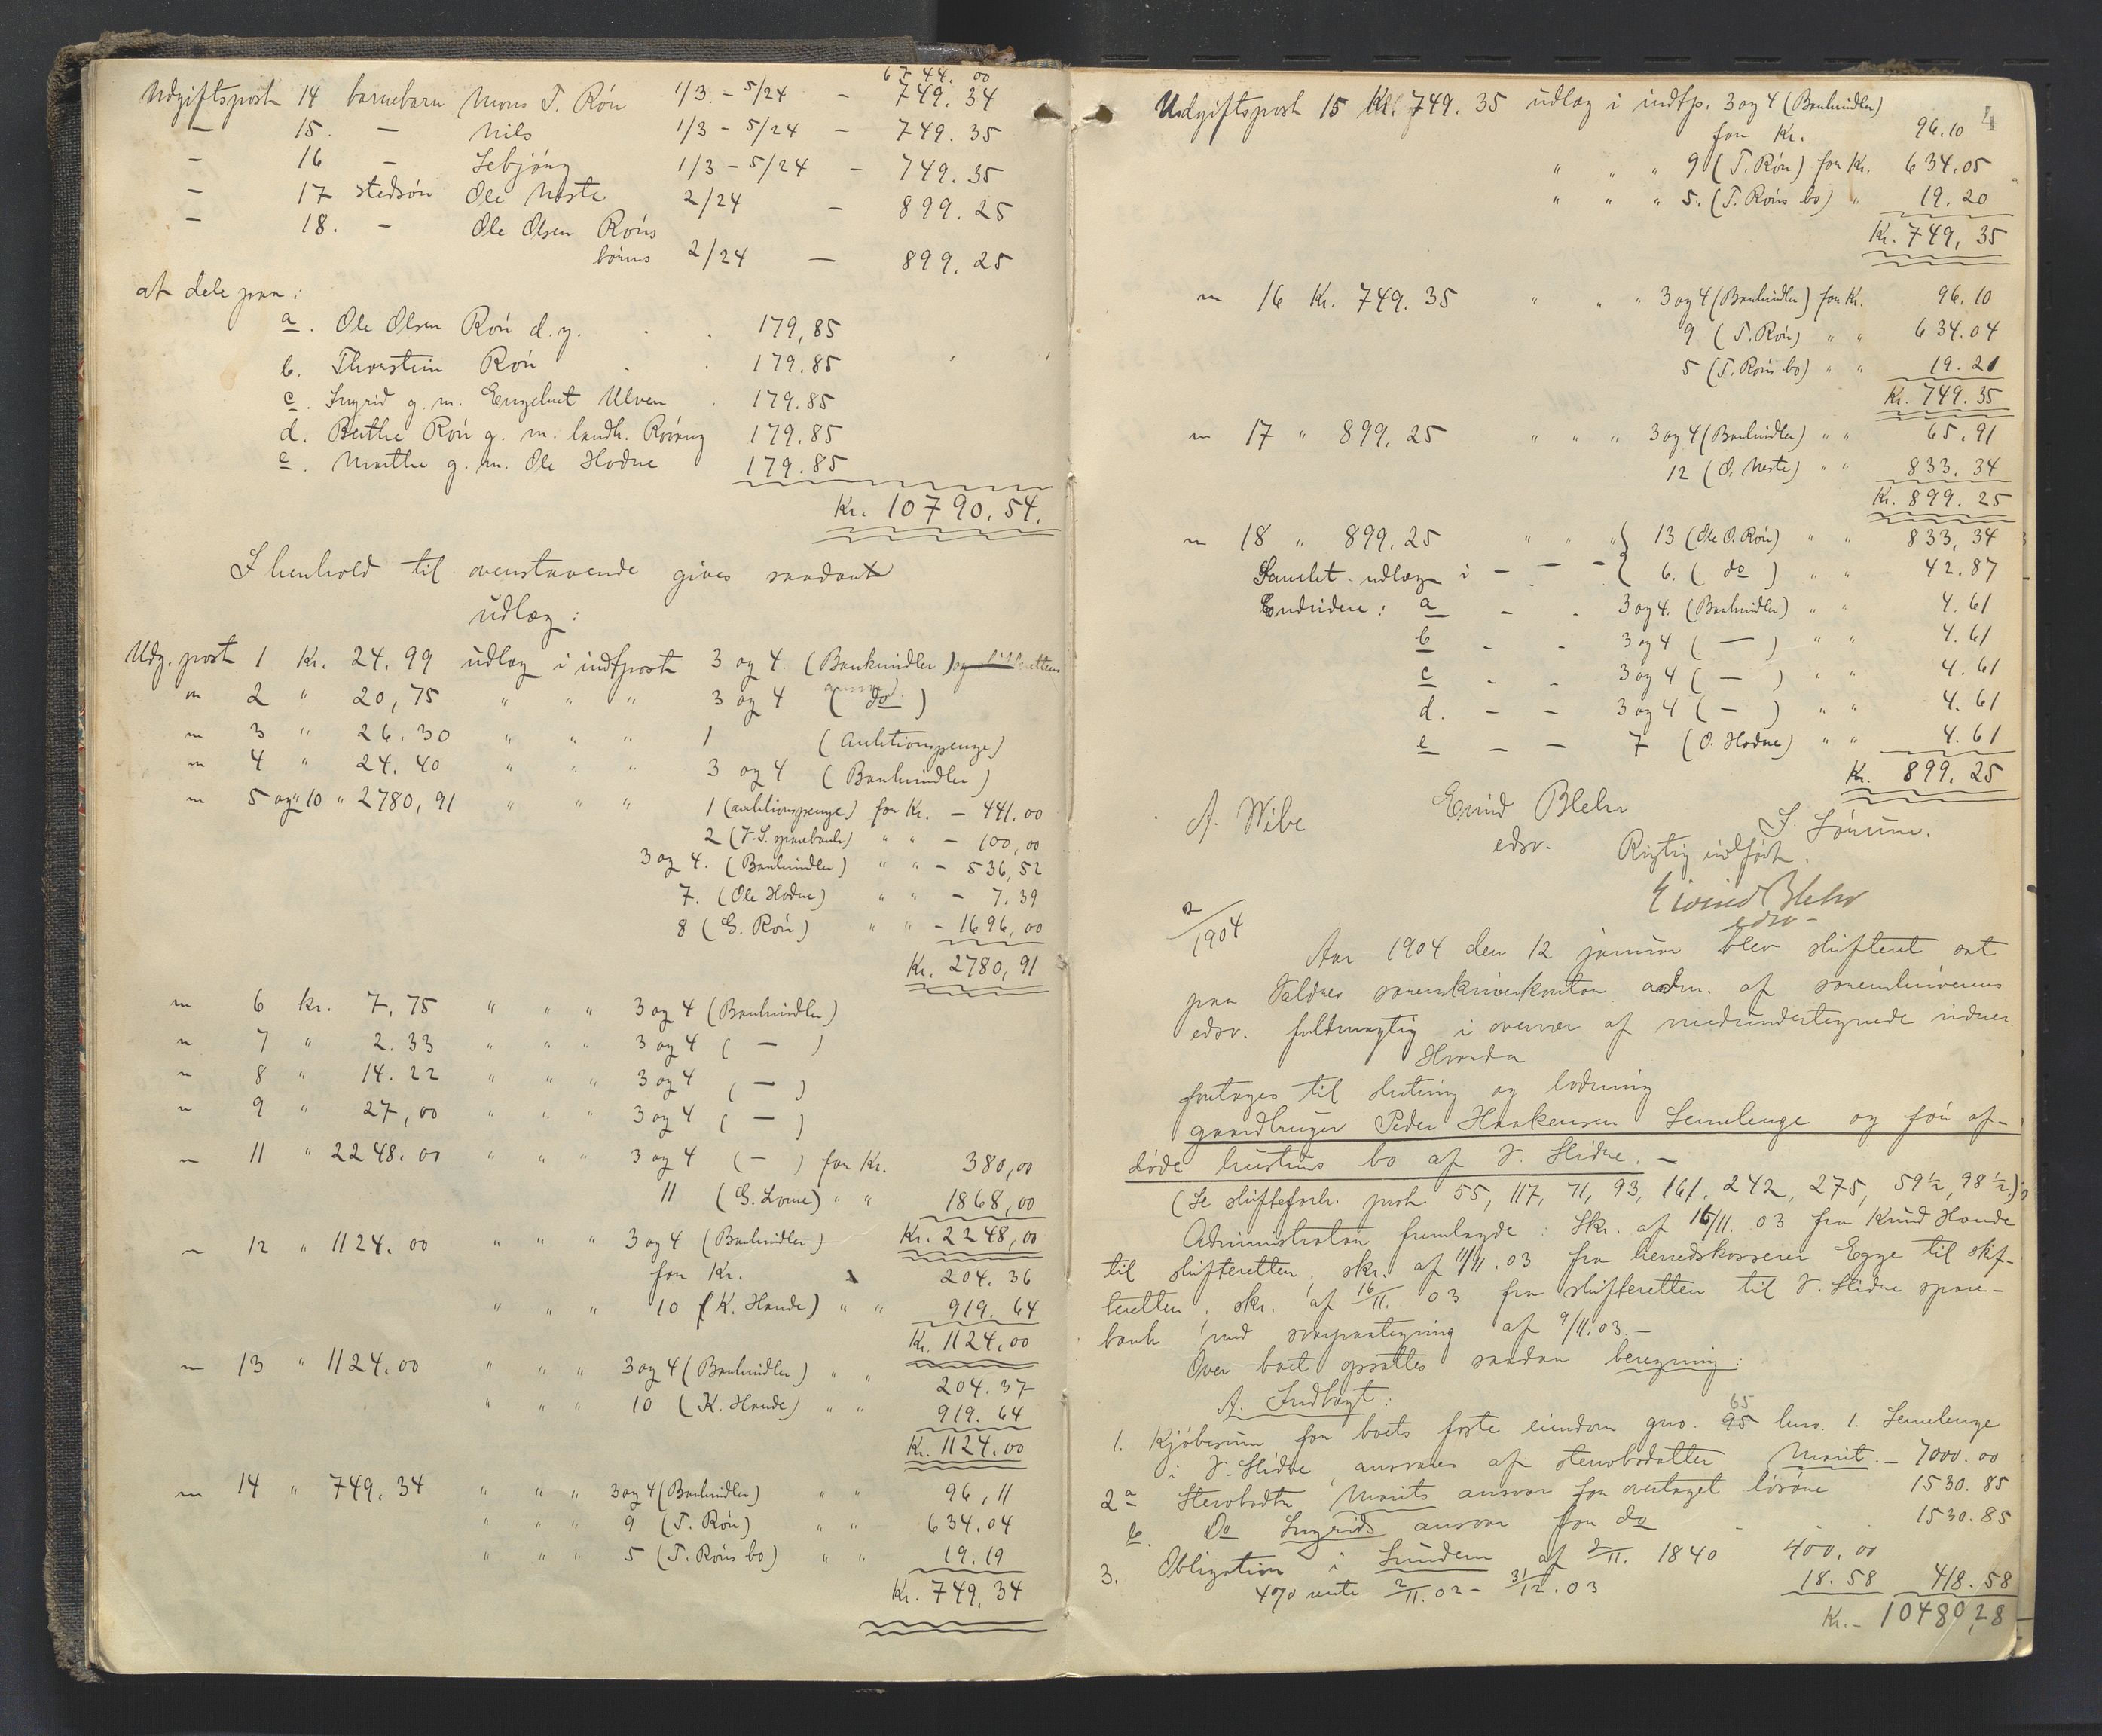 6744.00
Udgiftspost 14 barnebarn Mons T. Røn 1/3 - 5/24 - 749.34
— 15. — Nils 1/3 - 5/24 - 749.35
— 16 — Sebjörg 1/3 - 5/24 - 749.35
— 17 stedsøn Ole Neste 2/24 - 899.25
— 18. - Ole Olsen Røns
børns 2/24 — 899.25
at dele paa:
a. Ole Olsen Røn d.y. 179,85
b. Thorstein Røn 179.85
c. Ingrid g. m. Engebret Ulven 179.85
d. Berthe Røn g. m. landh. Röang 179.85
e. Marthe g. m. Ole Hodne 179.85
Kr. 10790.54.
I henhold til ovenstaaende gives saadant
udlæg:
Udg. post 1 Kr. 24.99 udlæg i indtpost 3 og 4. (Bankmidler)
" 2 " 20,75 " " " 3 og 4 (do)
" 3 " 26.30 " " " 1 (Auktionspenge)
" 4 " 24.40 " " " 3 og 4 (Bankmidler)
" 5 og 10 " 2780,91 " " " 1 (auktionspenge) for Kr. — 441.00
2 (V. S. sparebank) " " — 100,00
3 og 4. (Bankmidler) " " - 536,52
7. (Ole Hodne) " " - 7.39
8 (G. Røn) " " - 1696,00
Kr. 2780,91
" 6 kr. 7,75 " " " 3 og 4 (Bankmidler)
" 7 " 2.33 " " " 3 og 4 ( — )
" 8 " 14.22 " " " 3 og 4 ( — )
" 9 " 27,00 " " " 3 og 4 ( — )
" 11 " 2248.00 " " " 3 og 4 ( — ) for Kr. 380,00
11 (G. Lome) " " 1868,00
Kr. 2248,00
" 12 " 1124.00 " " " 3 og 4 (Bankmidler)
for Kr. 204.36
" " " 10 (K. Hande) " " 919.64
Kr. 1124.00
" 13 " 1124.00 " " " 3 og 4 (Bankmidler) " " 204.37
" " " 10 (K. Hande) " " 919.64
Kr. 1124.00
" 14 " 749.34 " " " 3 og 4 (Bankmidler) " " 96,11
" " " 9 (T. Røn) " " 634.04
" " " 5 (T. Røns bo) " " 19.19
Kr. 749.34
4
Udgiftspost 15 Kr. 749.35 udlæg i indtp. 3 og 4 (Bankmidler)
for Kr. 96.10
" " " 9 (T. Røn) for Kr. 634.05
" " " 5. (T. Røns bo) " 19.20
Kr. 749,35
" 16 Kr. 749.35 " " " 3 og 4 (Bankmidler) for Kr. 96.10
9 (T. Røn) " " 634.04
5 (T. Røns bo) " " 19.21
Kr. 749.35
" 17 " 899.25 " " " 3 og 4 (Bankmidler) " " 65.91
12 (O. Neste) " " 833.34
Kr. 899.25
" 18 " 899.25 " " " 13 (Ole O. Røn) " " 833,34
Samlet udlæg i - - - 6. ( do ) " " 42.87
Endvidere: a - - 3 og 4. (Bankmidler) " " 4.61
b - - 3 og 4 ( — ) " " 4.61
c - - 3 og 4 ( — ) " " 4.61
d. - - 3 og 4 ( — ) " " 4.61
e - - 7 (O. Hodne) " " 4.61
Kr. 899.25
A. Wibe Eivind Blehr
edsv. S. Sørum.
Rigtig indført.
Eivind Blehr
edsv
2/1904
Aar 1904 den 12 januar blev skifteret sat
paa Valdres sorenskriverkontor adm. af sorenskriverens
edsv. fuldmægtig i overvær af medundertegnede vidner
Hvorda
foretages til slutning og lodning
gaardbruger Peder Haakensen Semeleenge og før af-
døde hustrus bo af V. Slidre. —
(Se skifteforh. prot 55, 117, 71, 93, 161, 242, 275, 59½, 98½.)
Administrator fremlagde: Skr. af 16/11.03 fra Knud Hande
til skifteretten, skr. af 11/11.03 fra herredskasserer Egge til skif-
teretten, skr. af 16/11.03 fra skifteretten til V. Slidre spare-
bank med svarpaategning af 9/11.03.—
Over boet opsattes saadan beregning:
A. Indtægt:
1. Kjøbesum for boets faste eiendom gno. 95 65 bno. 1. Semelenge
i V. Slidre, ansvares af stervbodatter Marit. — 7000.00
2 a Stervbodtr. Marits ansvar for overtaget løsøre 1530.85
b. Do Ingrids ansvar for do - 1530.85
3. Obligation i Lundem af 2/11. 1840 400,00
4% rente 2/11.02 - 31/12.03 18.58 418.58
Kr. - 10480,28